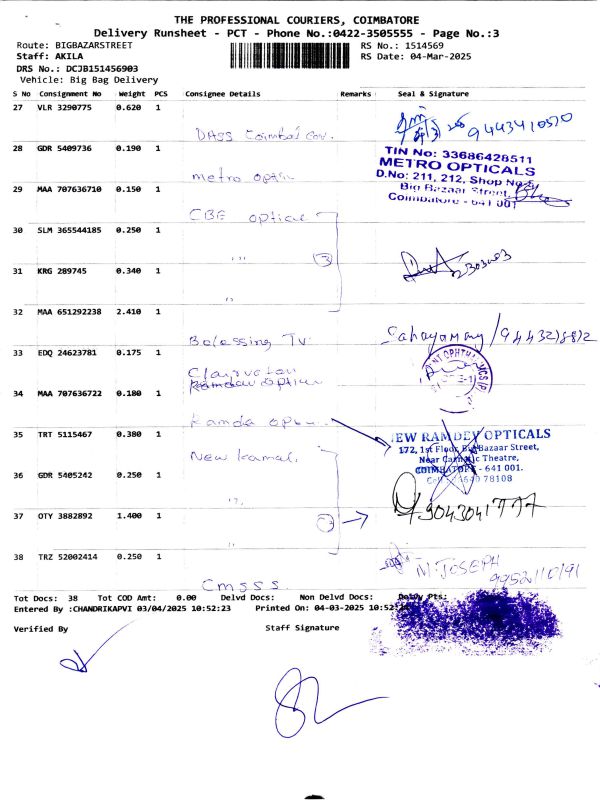 THE PROFESSIONAL COURIERS, COIMBATORE
Delivery Runsheet - PCT - Phone No.:0422-3505555 - Page No.:3
Route: BIGBAZARSTREET
RS No.: 1514569
Staff: AKILA
RS Date: 04-Mar-2025
DRS No.: DCJB151456903
Vehicle: Big Bag Delivery
S No Consignment No Weight PCS Consignee Details Remarks Seal & Signature
27 VLR 3290775 0.620 1
9443410570
28 GDR 5409736 0.190 1
metro
TIN No: 33686428511
METRO OPTICALS
D.No: 211, 212, Shop No.
Big Bazaar Street,
Coimbatore - 641 001
29 MAA 707636710 0.150 1
CBE optical
30 SLM 365544185 0.250 1
,,, 3
31 KRG 289745 0.340 1
,,
32 MAA 651292238 2.410 1
33 EDQ 24623781 0.175 1
34 MAA 707636722 0.180 1
35 TRT 5115467 0.380 1
New Kamal.
NEW RAMDEV OPTICALS
172, 1st Floor, Big Bazaar Street,
Near Carnatic Theatre,
COIMBATORE - 641 001.
36 GDR 5405242 0.250 1
,,
37 OTY 3882892 1.400 1
,,
9043041777
38 TRZ 52002414 0.250 1
M. JOSEPH
9952110191
Cmsss.
Tot Docs: 38 Tot COD Amt: 0.00 Delvd Docs: Non Delvd Docs: Delay Pts:
Entered By :CHANDRIKAPVI 03/04/2025 10:52:23 Printed On: 04-03-2025 10:52
Verified By
Staff Signature